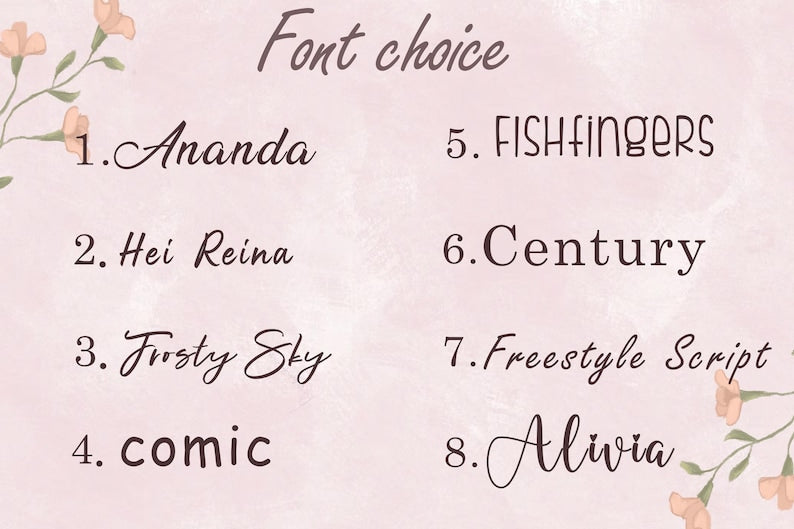 Font choice
1. Ananda
2. Hei Reina
3. Frosty Sky
4. comic
5. FISHfingeRS
6. Century
7. Freestyle Script
8. Alivia